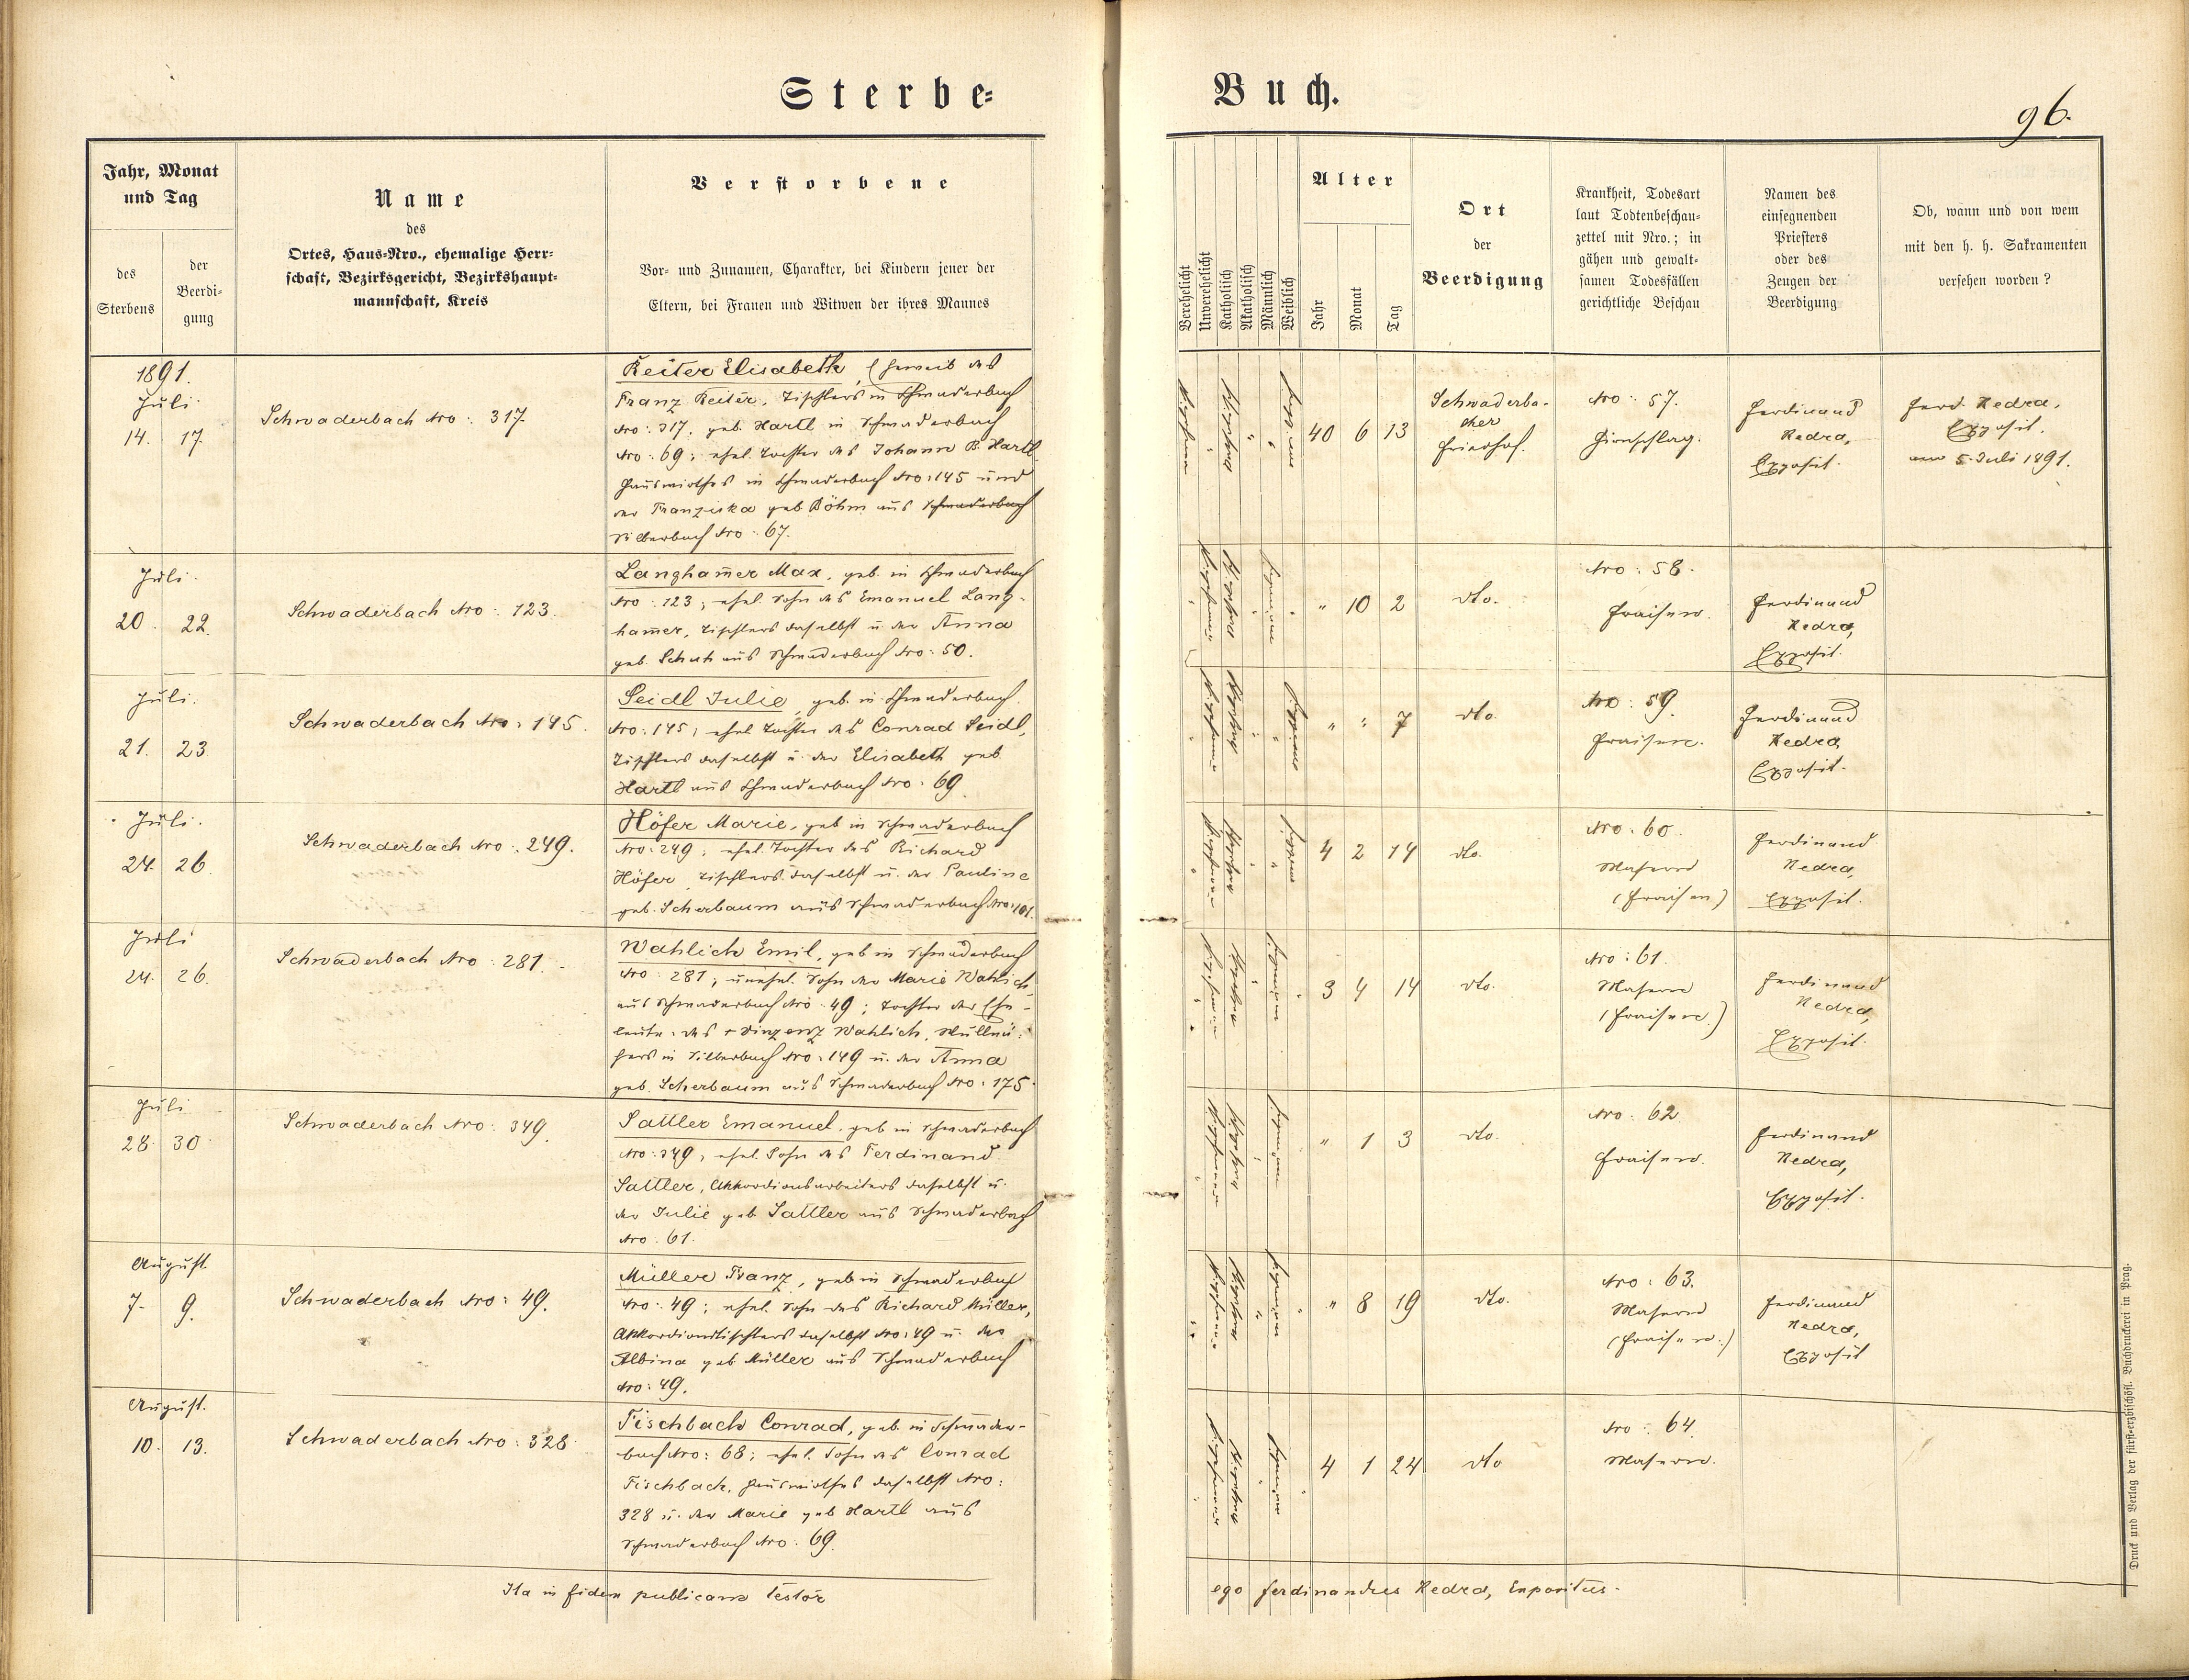 Sterbe=
Buch.
96.
Jahr, Monat
und Tag
des
Sterbens
der
Beerdi=
gung
Name
des
Ortes, Haus=Nro., ehemalige Herr=
schaft, Bezirksgericht, Bezirkshaupt=
mannschaft, Kreis
Verstorbene
Vor= und Zunamen, Charakter, bei Kindern jener der
Eltern, bei Frauen und Witwen der ihres Mannes
Verehelicht
Unverehelicht
Katholisch
Akatholisch
Männlich
Weiblich
Alter
Jahr
Monat
Tag
Ort
der
Beerdigung
Krankheit, Todesart
laut Todtenbeschau=
zettel mit Nro.; in
gähen und gewalt=
samen Todesfällen
gerichtliche Beschau
Namen des
einsegnenden
Priesters
oder des
Zeugen der
Beerdigung
Ob, wann und von wem
mit den h. h. Sakramenten
versehen worden?
1891.
Juli
14. 17.
Schwaderbach Nro: 317.
Reiter Elisabeth, Eheweib des
Franz Reiter, Tischlers in Schwaderbach
Nro: 317, geb. Hartl in Schwaderbach
Nro: 69; ehel. Tochter des Johann B. Hartl
Hauswirthes in Schwaderbach Nro: 145 und
der Franziska geb Böhm aus Schwaderbach
Silberbach Nro: 67.
40 6 13
Schwaderba-
cher
Friedhof.
Nro: 57.
Hirnschlag.
Ferdinand
Kedra,
Exposit.
Ferd. Kedra,
Exposit.
am 5. Juli 1891.
Juli.
20. 22.
Schwaderbach Nro: 123.
Langham̄er Max, geb. in Schwaderbach
Nro: 123; ehel. Sohn des Emanuel Lang-
ham̄er, Tischlers daselbst u. der Anna
geb. Schuh aus Schwaderbach Nro: 50.
" 10 2
dto.
Nro: 58.
Fraisen.
Ferdinand
Kedra,
Exposit.
Juli.
21. 23
Schwaderbach Nro: 145.
Seidl Julie, geb. in Schwaderbach
Nro: 145; ehel Tochter des Conrad Seidl,
Tischlers daselbst u. der Elisabeth geb
Hartl aus Schwaderbach Nro: 69
" " 7
dto.
Nro: 59.
Fraisen.
Ferdinand
Kedra
Exposit.
Juli.
24. 26.
Schwaderbach Nro: 249.
Höfer Marie, geb in Schwaderbach
Nro: 249; ehel. Tochter des Richard
Höfer, Tischlers daselbst u. der Pauline
geb. Scherbaum aus Schwaderbach Nro: 101.
4 2 14
dto.
Nro: 60.
Masern
(Fraisen)
Ferdinand
Kedra,
Exposit.
Juli
24. 26.
Schwaderbach Nro: 281.
Wahlich Emil, geb in Schwaderbach
Nro: 281; unehel. Sohn der Marie Wahlich,
aus Schwaderbach Nro: 49; Tochter der Ehe-
leute: des + Vinzenz Wahlich,
in Silberbach Nro: 149 u. der Anna
geb. Scherbaum aus Schwaderbach Nro: 175.
3 4 14
dto.
Nro: 61.
Masern
(Fraisen.)
Ferdinand
Kedra,
Exposit.
Juli
28. 30.
Schwaderbach Nro: 349.
Sattler Emanuel, geb in Schwaderbach
Nro: 349, ehel. Sohn des Ferdinand
Sattler, Akkordionsarbeiters daselbst u.
der Julie geb Sattler aus Schwaderbach
Nro: 61.
" 1 3
dto.
Nro: 62
Fraisen.
Ferdinand
Kedra,
Exposit.
August.
7. 9.
Schwaderbach Nro: 49.
Müller Franz, geb in Schwaderbach
Nro: 49; ehel. Sohn des Richard Müller,
Akkordiontischlers daselbst Nro: 49 u. der
Albina geb Müller aus Schwaderbach
Nro: 49.
" 8 19
dto.
Nro: 63.
Masern
(Fraisen.)
Ferdinand
Kedra,
Exposit
August.
10. 13.
Schwaderbach Nro: 328.
Fischbach Conrad, geb. in Schwader-
bach Nro: 68; ehel. Sohn des Conrad
Fischbach, Hauswirthes daselbst Nro:
328 u. der Marie geb Hartl aus
Schwaderbach Nro: 69.
4 1 24
dto
Nro: 64.
Masern.
Ita in fidem publicam testor
ego Ferdinandus Kedra, Expositus.
Druck und Verlag der fürst=erzbischöfl. Buchdruckerei in Prag.